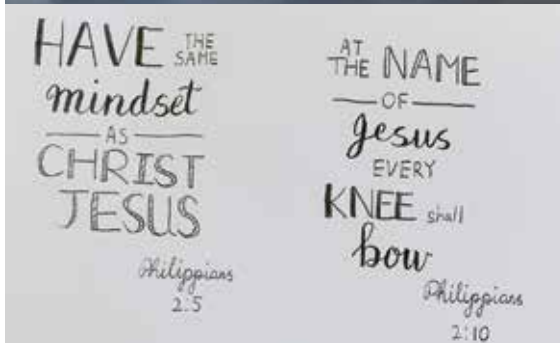 HAVE THE SAME
mindset
AS
CHRIST
JESUS
Philippians
2:5
AT THE NAME
OF
Jesus
EVERY
KNEE shall
bow
Philippians
2:10